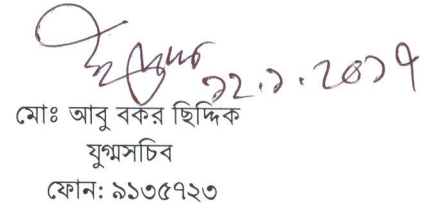 ১২.১.২০১৭
মোঃ আবু বকর ছিদ্দিক
যুগ্মসচিব
ফোন: ৯১৩৫৭২৩